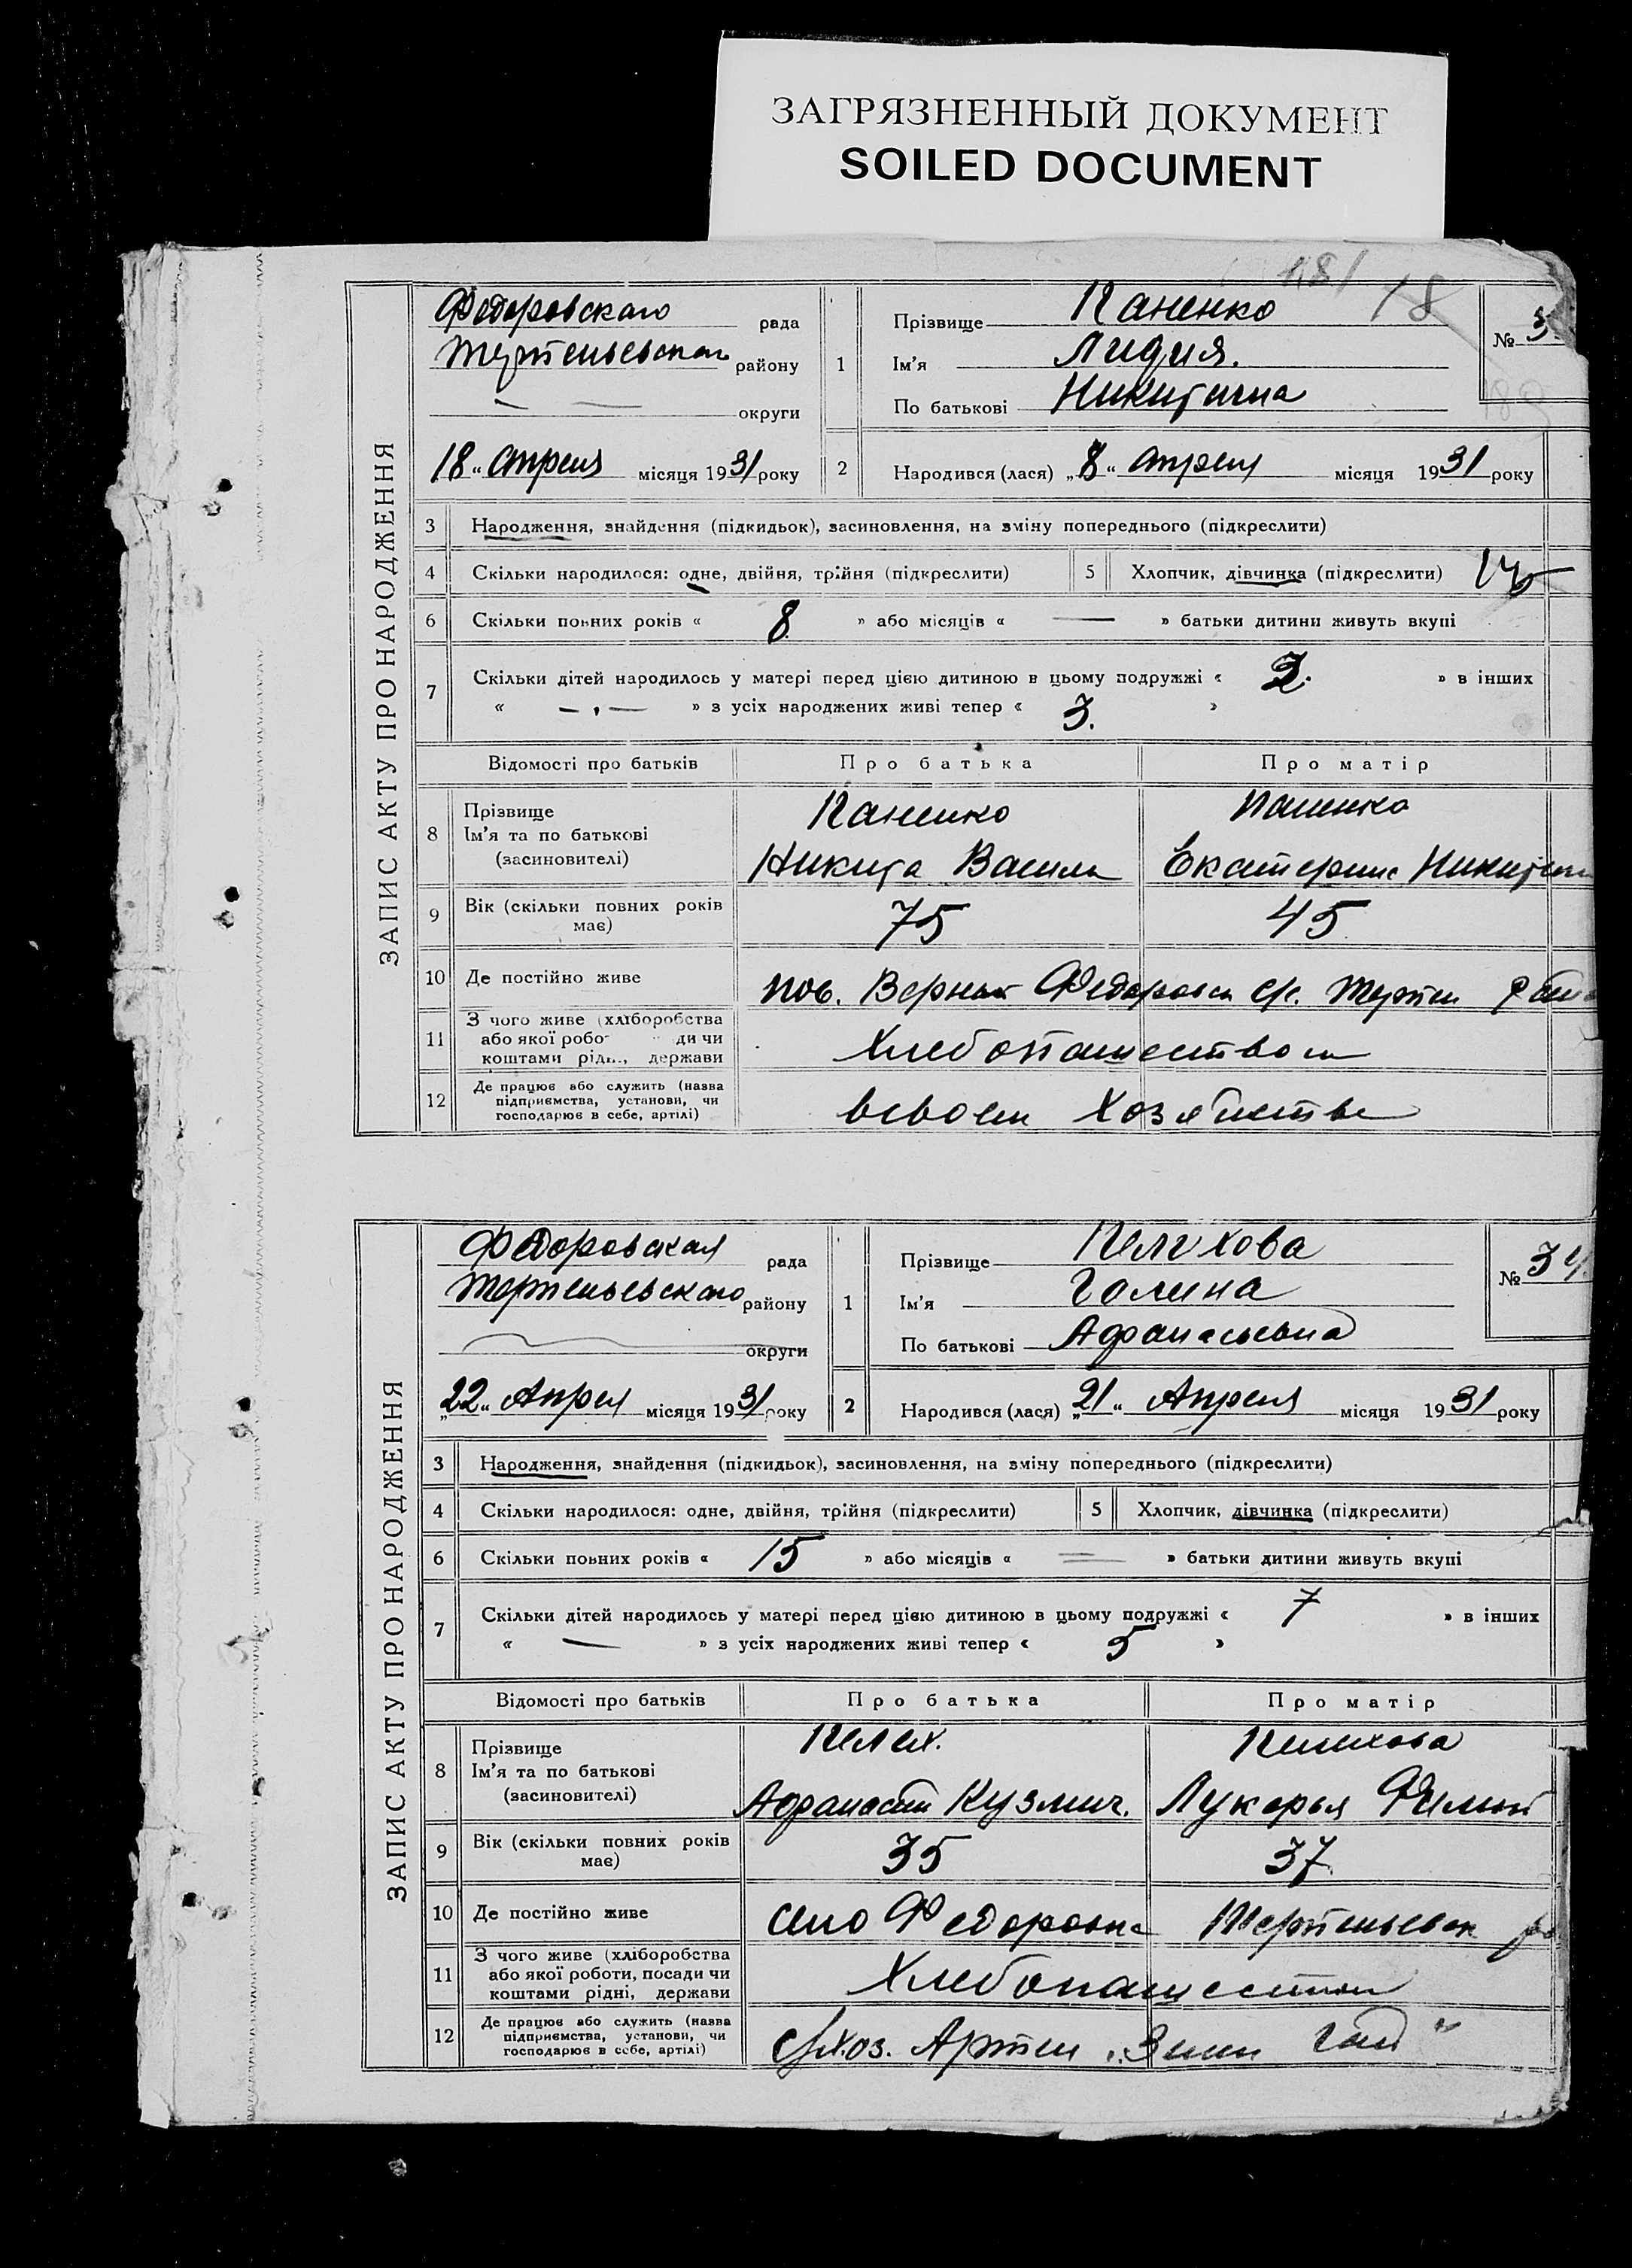 ЗАГРЯЗНЕННЫЙ ДОКУМЕНТ
SOILED DOCUMENT
181 18
ЗАПИС АКТУ ПРО НАРОДЖЕННЯ
Федоровского рада
района району
— — округи
18 „ Апреля місяця 1931 року
1 Прізвище Паненко
Ім'я Лидия.
По батькові Никитична
№ 3
2 Народився (лася) „8“ Апреля місяця 1931 року
3 Народження, знайдення (підкидьок), засиновлення, на зміну попереднього (підкреслити)
4 Скільки народилося: одне, двійня, трійня (підкреслити) 5 Хлопчик, дівчинка (підкреслити)
6 Скільки повних років « 8 » або місяців « — » батьки дитини живуть вкупі
7 Скільки дітей народилось у матері перед цією дитиною в цьому подружжі « » в інших
« — , — » з усіх народжених живі тепер « 3. »
Відомості про батьків Про батька Про матір
8 Прізвище Ім'я та по батькові (засиновителі) Паненко Паненко
Никита Васил Екатерина
9 Вік (скільки повних років має) 75 45
10 Де постійно живе Федоровск
11 З чого живе (хліборобства або якої робо ди чи коштами рідн., держави Хлебопашеством
12 Де працює або служить (назва підприємства, установи, чи господарює в себе, артілі) всвоем Хозяйстве
ЗАПИС АКТУ ПРО НАРОДЖЕННЯ
Федоровская рада
району
округи
„22“ Апреля місяця 1931 року
1 Прізвище Пелихова
Ім'я Галина
По батькові Афанасьевна
№ 34
2 Народився (лася) „21“ Апреля місяця 1931 року
3 Народження, знайдення (підкидьок), засиновлення, на зміну попереднього (підкреслити)
4 Скільки народилося: одне, двійня, трійня (підкреслити) 5 Хлопчик, дівчинка (підкреслити)
6 Скільки повних років « 15 » або місяців « = » батьки дитини живуть вкупі
7 Скільки дітей народилось у матері перед цією дитиною в цьому подружжі « 7 » в інших
« — » з усіх народжених живі тепер « 5 »
Відомості про батьків Про батька Про матір
8 Прізвище Ім'я та по батькові (засиновителі) Пелих. Пелихова
Афанасий Кузмич. Лукерья Филип
9 Вік (скільки повних років має) 35 37
10 Де постійно живе село Федоровка
11 З чого живе (хліборобства або якої роботи, посади чи коштами рідні, держави Хлебопашеством
12 Де працює або служить (назва підприємства, установи, чи господарює в себе, артілі) Артел